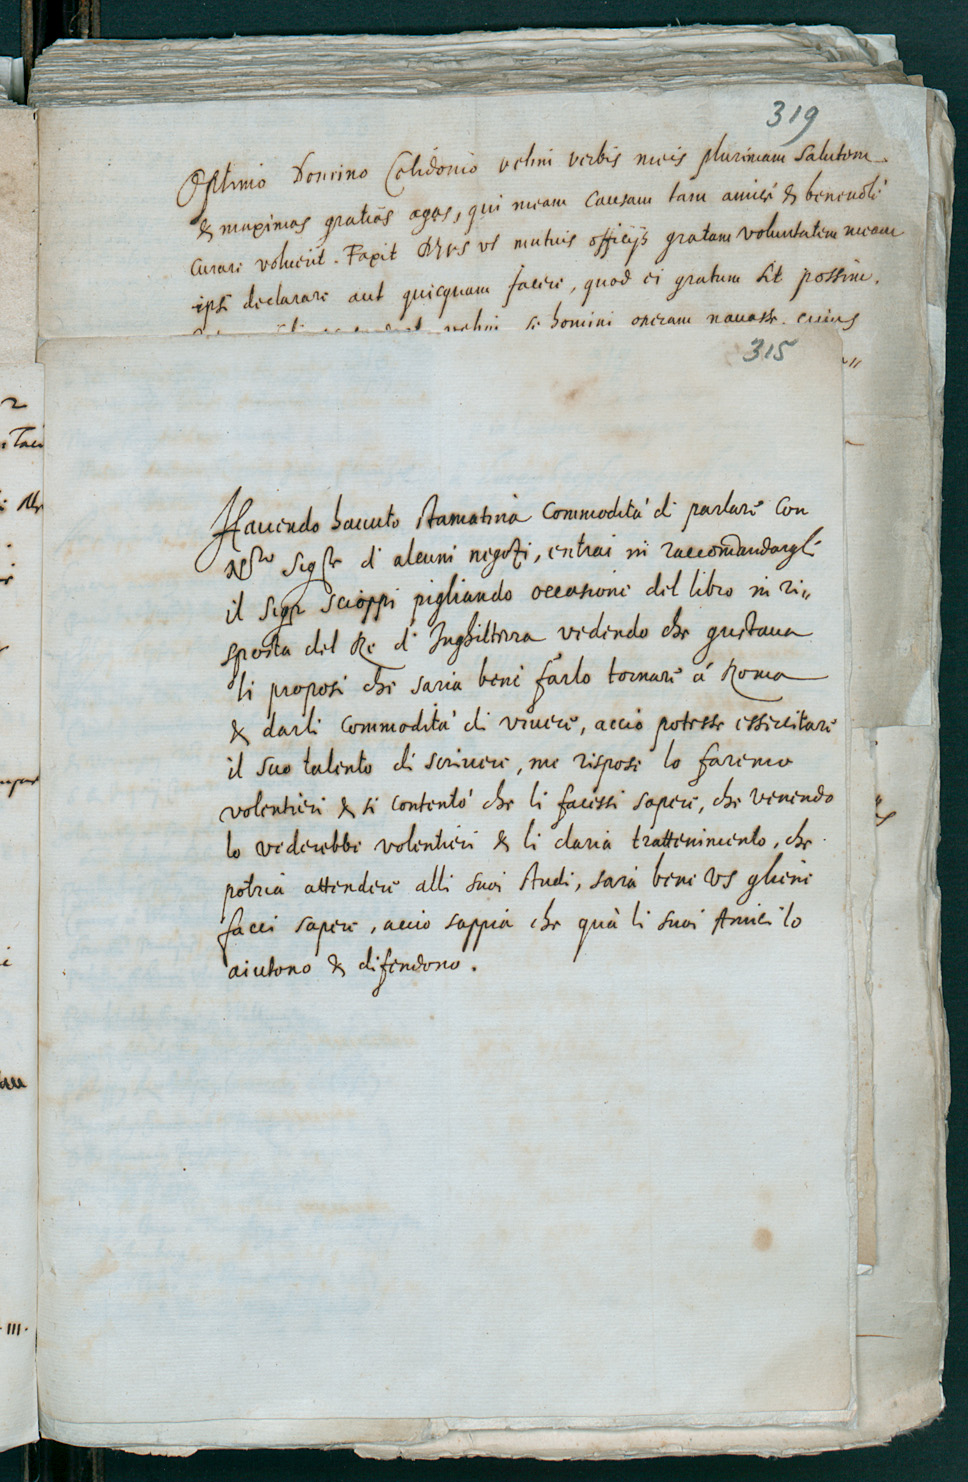 319
Optimo Domino Celidonio velim verbis meis plurimam salutem
& maximas gratias agas, qui meam causam tam amicè & benevolè
curare voluerit. Faxit Deus ut mutuis officijs gratam voluntatem meam
ipsi declarare aut quicquam facere, quod ei gratum sit possim.
velim se homini operam navasse. cuius
315
Havendo havuto stamatina commodità di parlare con
Nro Sigre d'alcuni negotj, entrai in raccomandargli
il Sigr Scioppi pigliando occasione del libro in ri„
sposta del Re d'Inghilterra vedendo che gustava
li proposi che saria bene farlo tornare à Roma
& darli commodità di vivere, acciò potesse essercitare
il suo talento di scrivere, me rispose lo faremo
volentieri & si contentò che li facessi sapere, che venendo
lo vederebbe volentieri & li daria trattenimento, che
potria attendere alli suoi studi, sarà bene VS gliene
facci sapere, acciò sappia che quà li suoi Amici lo
aiutono & difendono.
2
III.